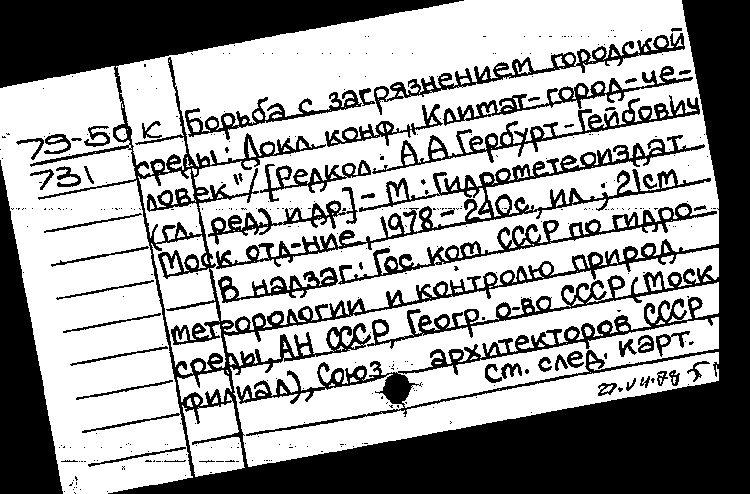 79-50к Борьба с загрязнением городской
731 среды: Докл. конф. „Климат-город-че-
ловек"/[Редкол.: А.А.Гербурт-Гейбович
(гл. ред.) и др.] - М.: Гидрометеоиздат.
Моск. отд-ние, 1978.- 240с., ил.; 21см.
В надзаг.: Гос. ком. СССР по гидро-
метеорологии и контролю природ.
среды, АН СССР, Геогр. о-во СССР (Моск.
филиал), Союз архитекторов СССР
Ст. след. карт.